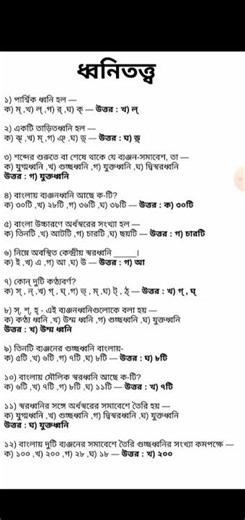 ধ্বনিতত্ত্ব
১) পার্শ্বিক ধ্বনি হল —
ক) ম্ ,খ) ল্ ,গ) র্ ,ঘ) ক্ — উত্তর : খ) ল্
২) একটি তাড়িতধ্বনি হল —
ক) ঝ্ ,খ) ম্ ,গ) ঞ্ ,ঘ) ড়্ — উত্তর : ঘ) ড়্
৩) শব্দের শুরুতে বা শেষে থাকে যে ব্যঞ্জন-সমাবেশ, তা —
ক) যুগ্মধ্বনি ,খ) গুচ্ছধ্বনি ,গ) যুক্তধ্বনি ,ঘ) দ্বিস্বরধ্বনি
উত্তর : গ) যুক্তধ্বনি
৪) বাংলায় ব্যঞ্জনধ্বনি আছে ক-টি?
ক) ৩০টি ,খ) ২৮টি ,গ) ৩৬টি ,ঘ) ৩৯টি — উত্তর : ক) ৩০টি
৫) বাংলা উচ্চারণে অর্ধস্বরের সংখ্যা হল —
ক) তিনটি ,খ) আটটি ,গ) চারটি ,ঘ) ছয়টি — উত্তর : গ) চারটি
৬) নিম্নে অবস্থিত কেন্দ্রীয় স্বরধ্বনি _____।
ক) ই ,খ) এ ,গ) আ ,ঘ) উ — উত্তর : গ) আ
৭) কোন্ দুটি কণ্ঠ্যবর্ণ?
ক) স্ , ন্ ,খ) গ্ , ঘ্ ,গ) ভ্ , ম্ ,ঘ) ট্ , ঠ্ — উত্তর : খ) গ্ , ঘ্
৮) স্, শ্, হ্ - এই ব্যঞ্জনধ্বনিগুলোকে বলা হয় —
ক) কণ্ঠ্য ধ্বনি ,খ) উষ্ম ধ্বনি ,গ) গুচ্ছধ্বনি ,ঘ) যুক্তধ্বনি
উত্তর : খ) উষ্ম ধ্বনি
৯) তিনটি ব্যঞ্জনের গুচ্ছধ্বনি বাংলায়-
ক) ৫টি ,খ) ৬টি ,গ) ৭টি ,ঘ) ৮টি — উত্তর : ঘ) ৮টি
১০) বাংলায় মৌলিক স্বরধ্বনি আছে ক-টি?
ক) ৬টি ,খ) ৭টি ,গ) ৮টি ,ঘ) ১১টি — উত্তর : খ) ৭টি
১১) স্বরধ্বনির সঙ্গে অর্ধস্বরের সমাবেশে তৈরি হয় —
ক) যুগ্মধ্বনি ,খ) গুচ্ছধ্বনি ,গ) দ্বিস্বরধ্বনি ,ঘ) যুক্তধ্বনি
উত্তর : ঘ) যুক্তধ্বনি
১২) বাংলায় দুটি ব্যঞ্জনের সমাবেশে তৈরি গুচ্ছধ্বনির সংখ্যা কমপক্ষে —
ক) ১০০ ,খ) ২০০ ,গ) ২৮ ,ঘ) ১৮ — উত্তর : খ) ২০০